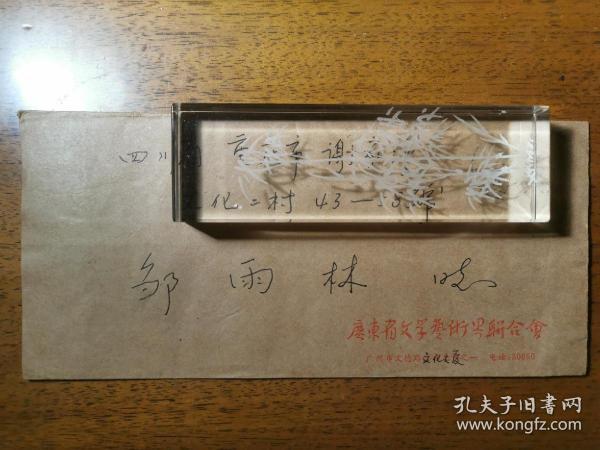 四川 重庆市
文化二村 43—
邹雨林
廣東省文学藝術界聯合會
广州市文德路文化大厦之一 电话:30050
孔夫子旧书网
www.kongfz.com